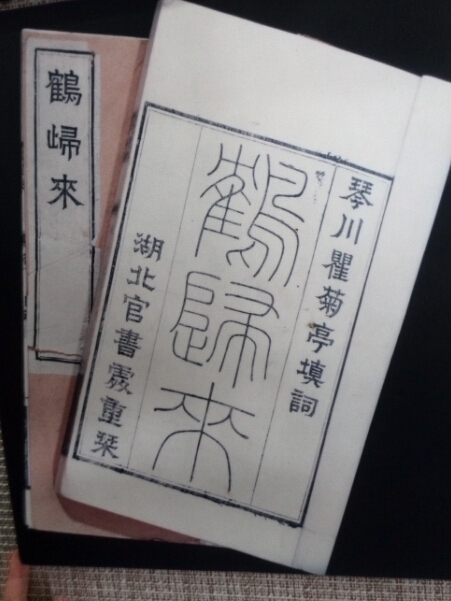 鶴歸來
琴川瞿菊亭填詞
鶴歸來
湖北官書處重栞